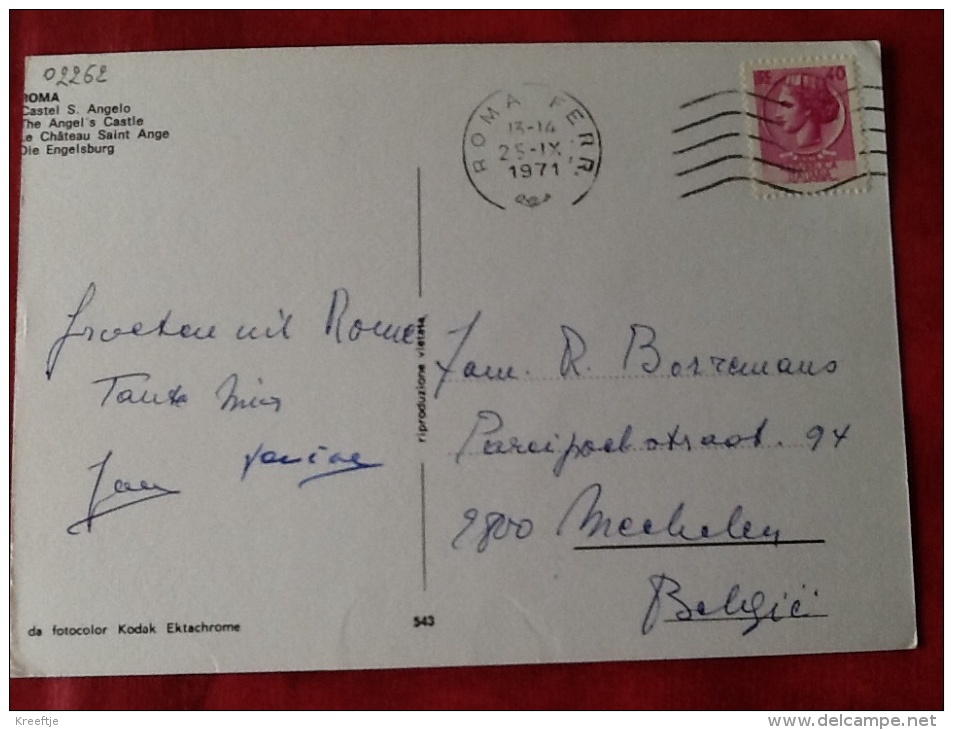 02262
ROMA
Castel S. Angelo
The Angel's Castle
Le Château Saint Ange
Die Engelsburg
ROMA FERR.
13-14
25-IX
1971
LIRE 40
Groeten uit Rome
Tante
Jan
riproduzione vietata
Fam. R. Borremans
94
2800 Mechelen
België
da fotocolor Kodak Ektachrome
543
Kreeftje
www.delcampe.net